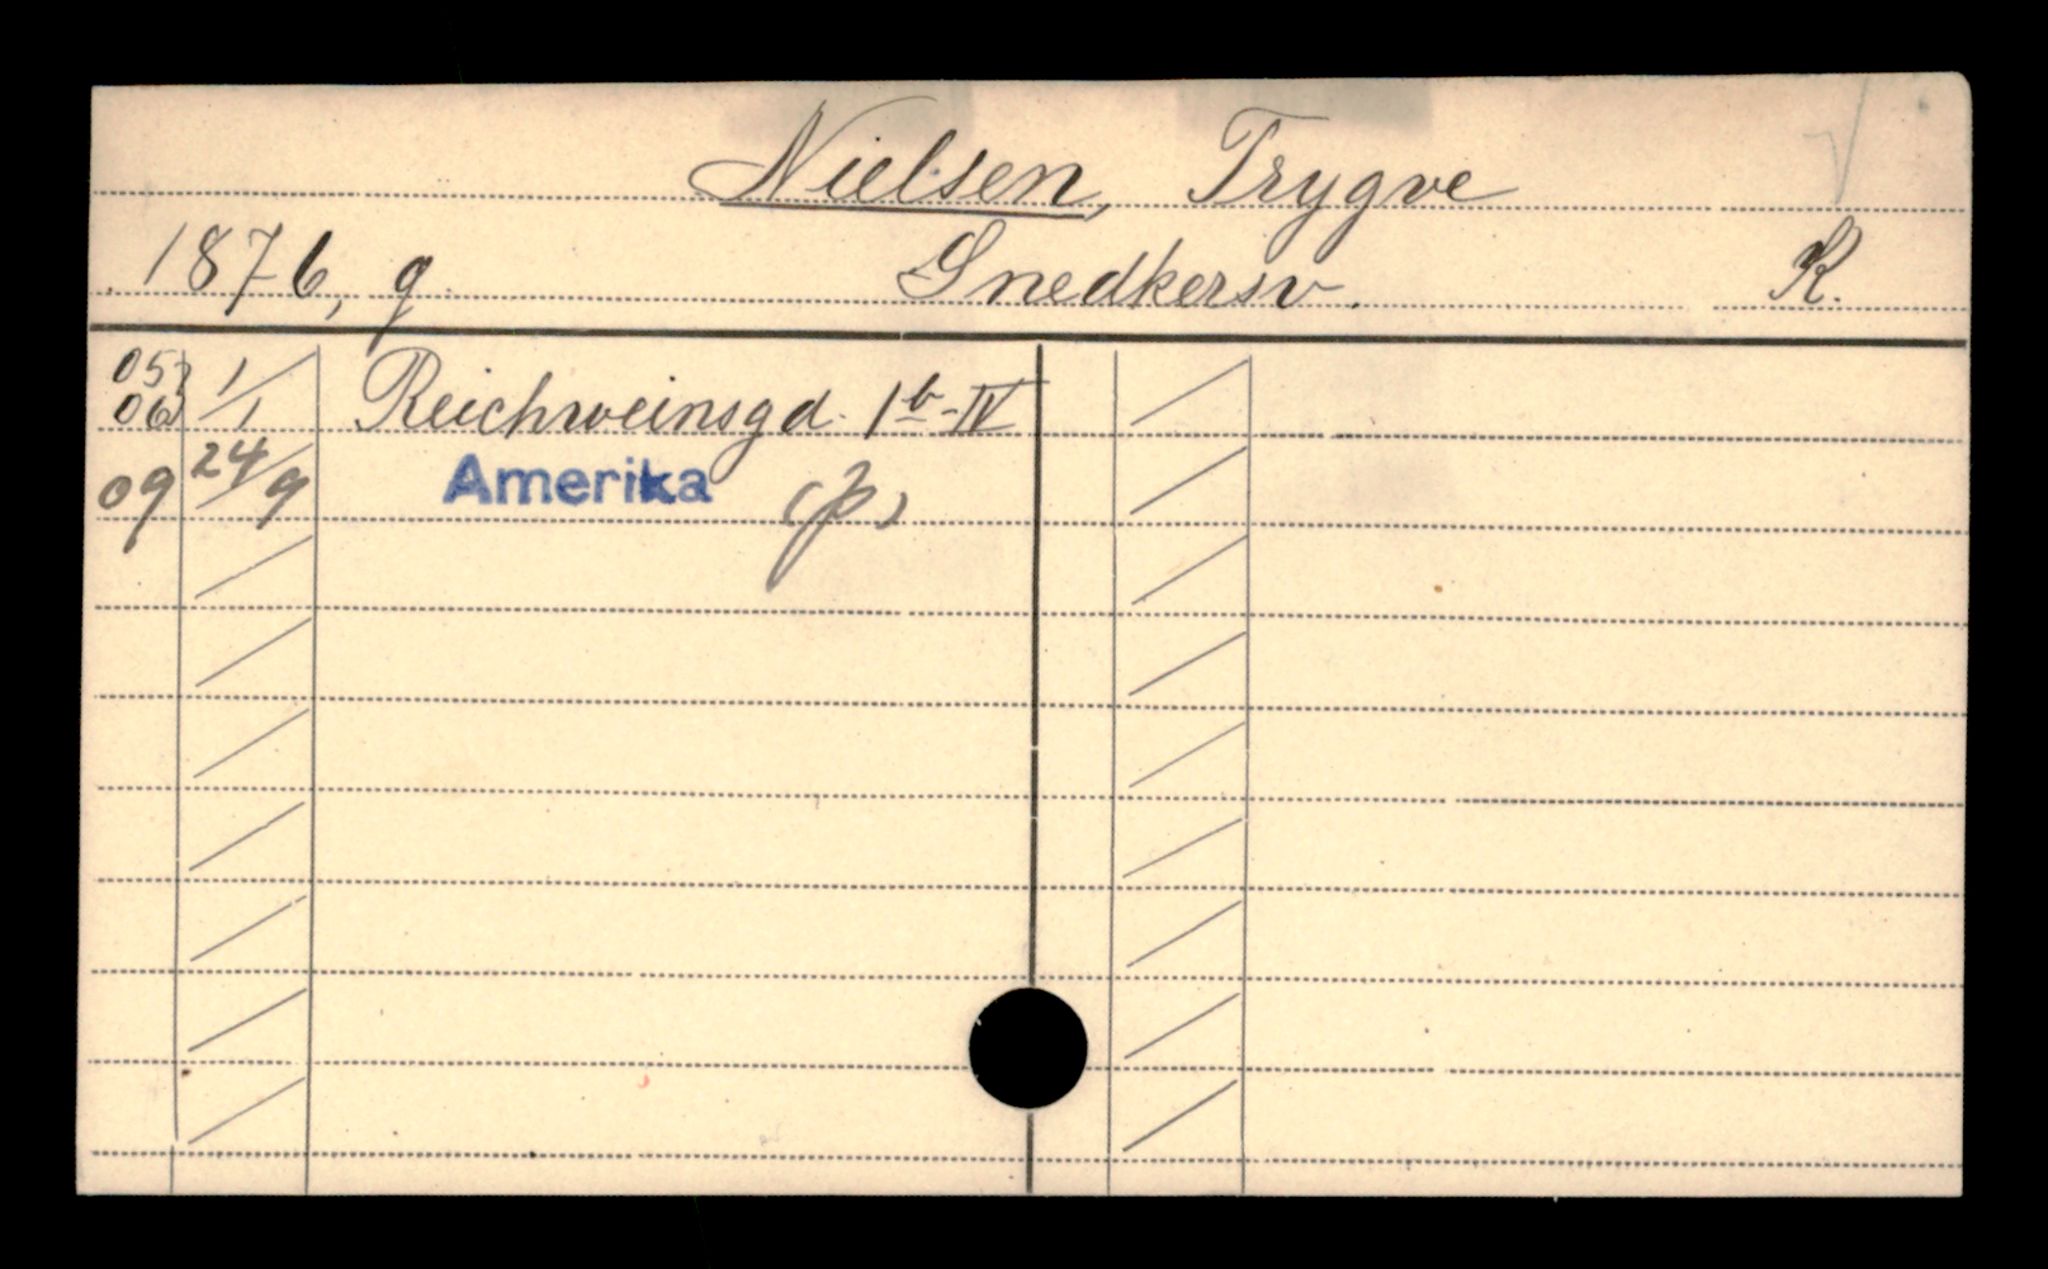 Nielsen, Trygve
1876, g Snedkersv. K.
05 1/
06 /1 Reichweinsgd. 1b-IV
09 24/9 Amerika (p)